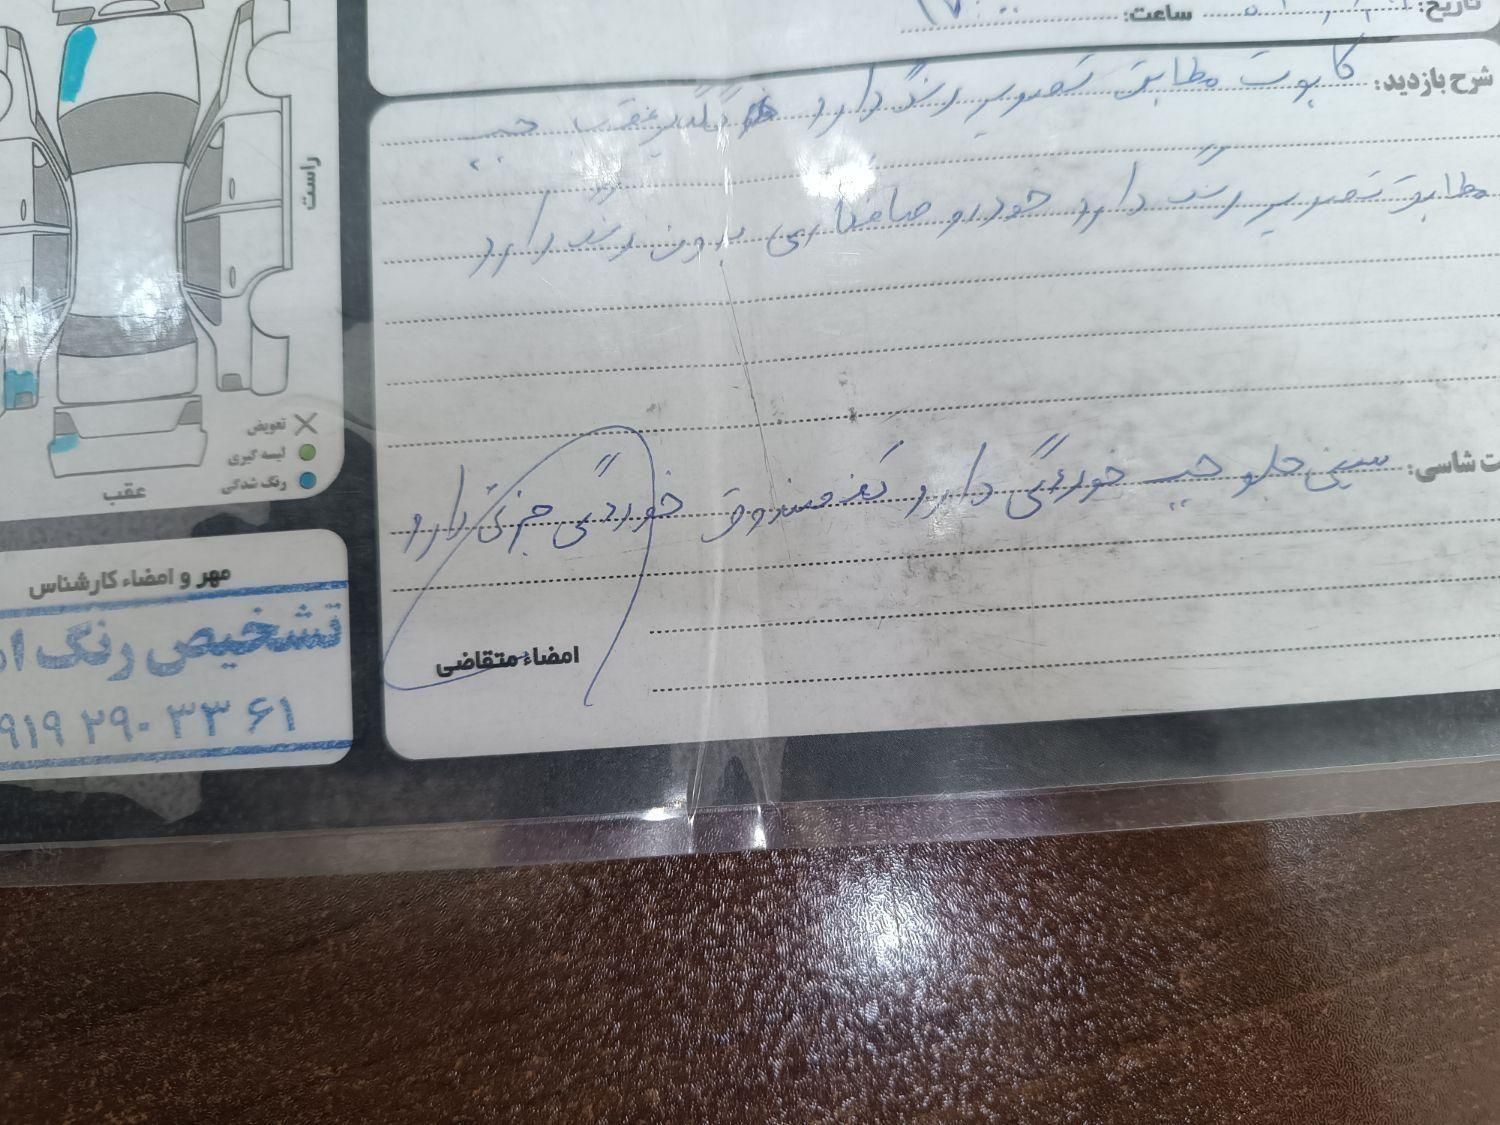 تاریخ: ساعت: ۱۷:۰۰
شرح بازدید: کاپوت مطابق تصویر رنگ دارد گلگیر عقب چپ
مطابق تصویر رنگ دارد خودرو صافکاری بدون رنگ دارد
ت شاسی: سینی جلو چپ خوردگی دارد کف صندوق خوردگی جزئی دارد
امضاء متقاضی
راست
تعویض
لیسه گیری
رنگ شدگی
عقب
مهر و امضاء کارشناس
تشخیص رنگ ا
۹۱۹ ۲۹۰ ۳۳ ۶۱